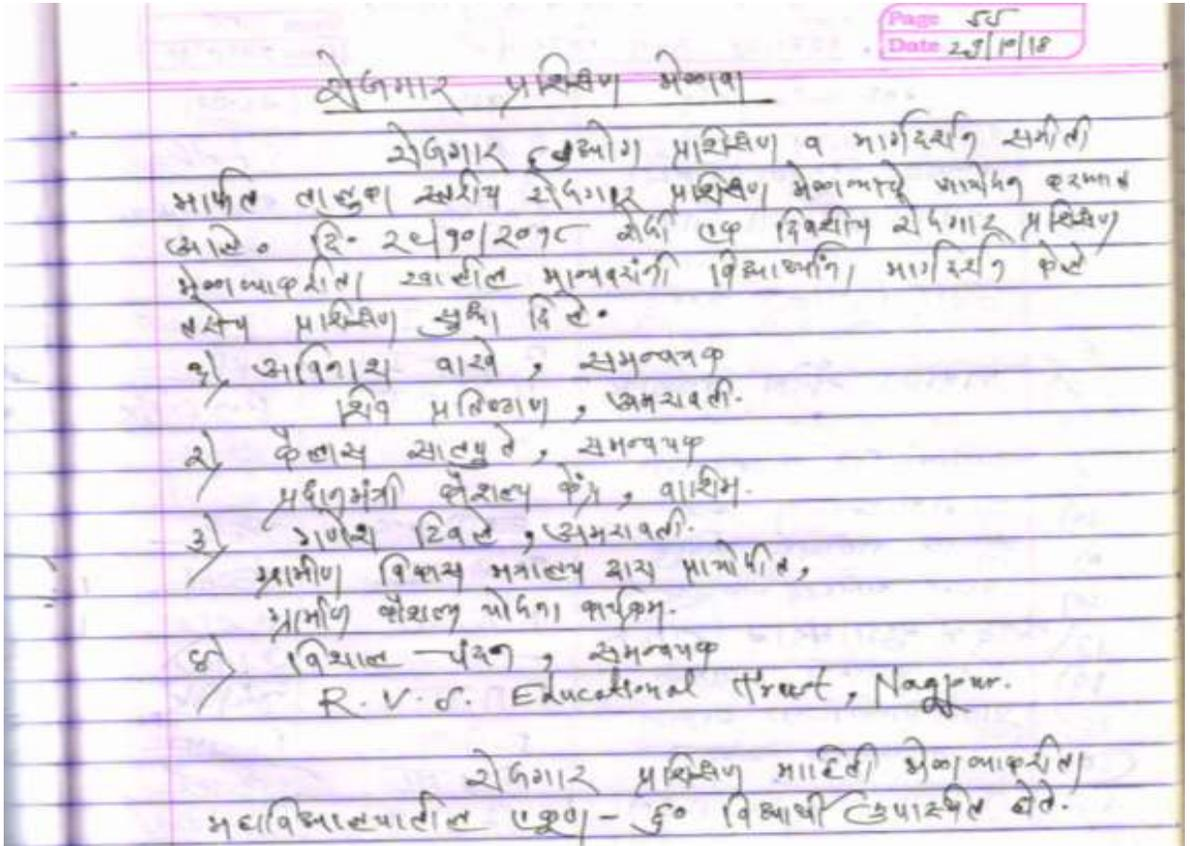 Page 55
Date 29/10/18
रोजगार प्रशिक्षण मेळावा
रोजगार उद्योग प्रशिक्षण व मार्गदर्शन समीती
मार्फत तालुका स्तरीय रोजगार प्रशिक्षण मेळाव्याचे आयोजन करण्यात
आले. दि. २९/१०/२०१८ रोजी एक दिवसीय रोजगार प्रशिक्षण
मेळाव्याकरीता खालील मान्यवरांनी विद्यार्थ्यांना मार्गदर्शन केले
तसेच प्रशिक्षण सुध्दा दिले.
१) अविनाश वारखे, समन्वयक
शिव प्रतिष्ठाण, अमरावती.
२) कैलास सातपुते, समन्वयक
प्रधानमंत्री कौशल्य केंद्र, वाशिम.
३) गणेश दिवले, अमरावती.
ग्रामीण विकास मंत्रालय द्वारा प्रायोजीत,
ग्रामीण कौशल्य योजना कार्यक्रम.
४) विशाल चंदन, समन्वयक
R.V.S. Educational Trust, Nagpur.
रोजगार प्रशिक्षण माहिती मेळाव्याकरीता
महाविद्यालयातील एकूण - ६० विद्यार्थी उपस्थित होते.